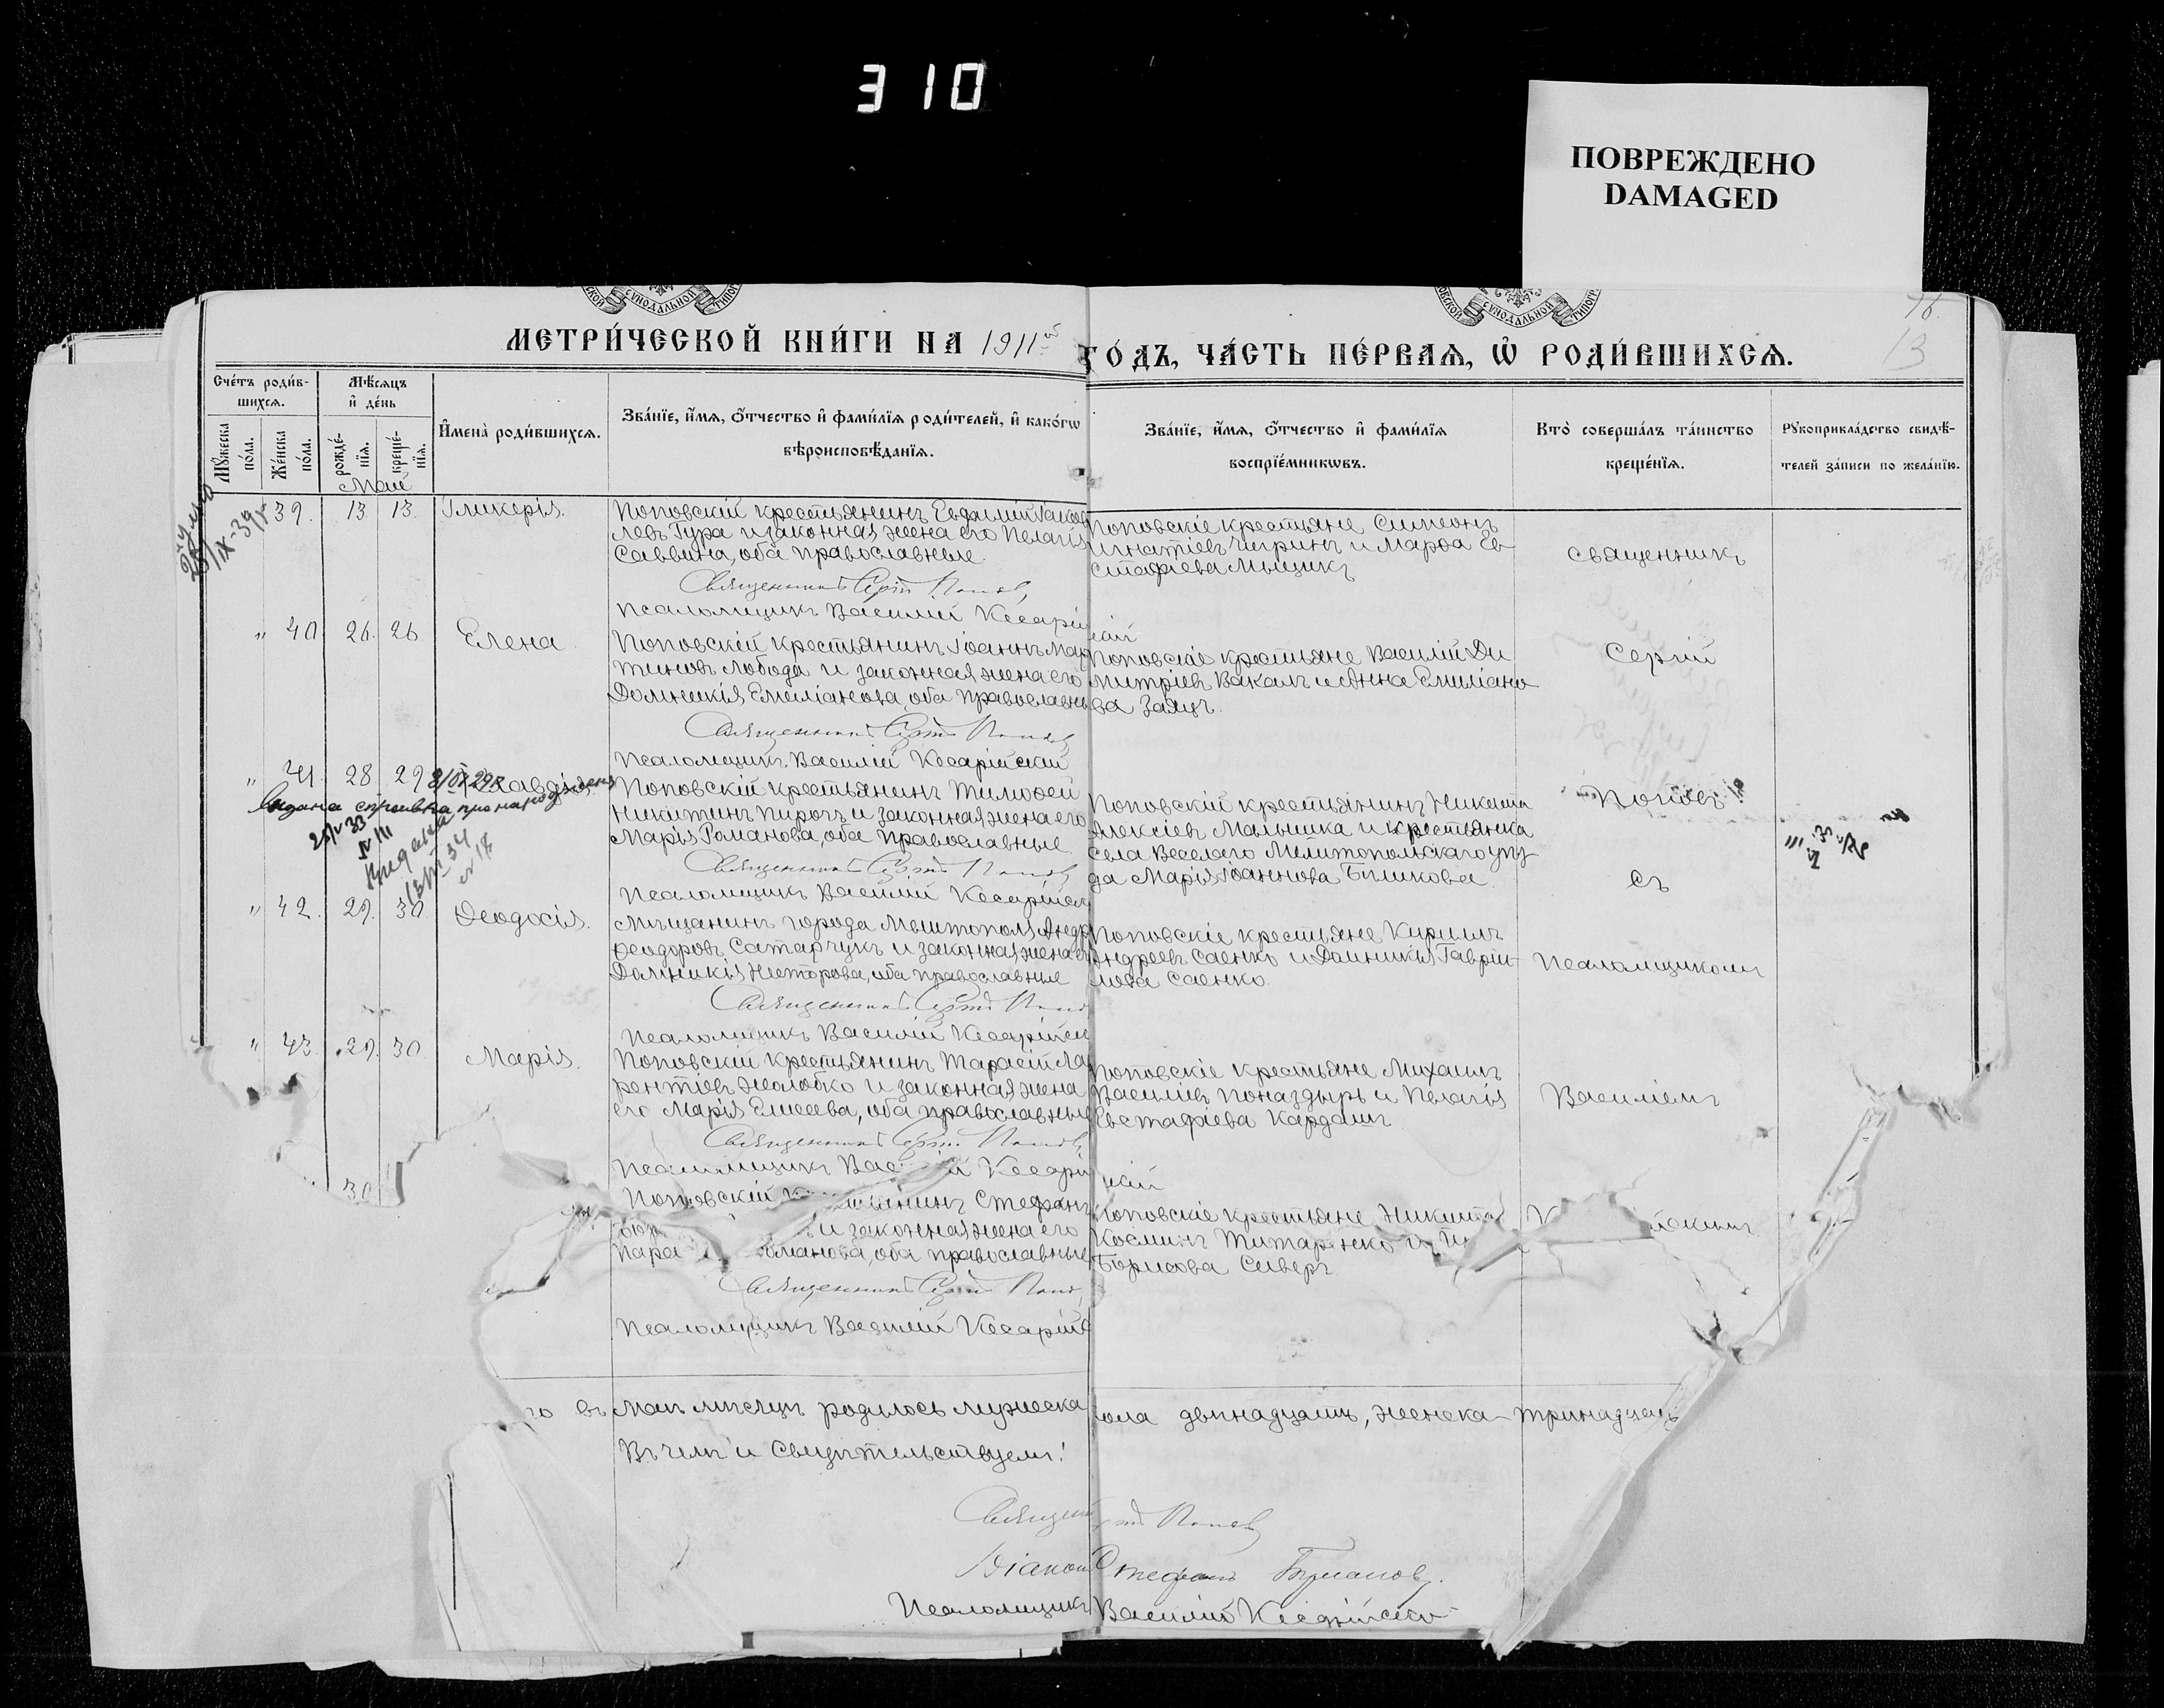 310
ПОВРЕЖДЕНО
DAMAGED
МЕТРИ́ЧЕСКОЙ КНИ́ГИ НА 1911й
ГО́ДЪ, ЧА́СТЬ ПЕ́РВАѦ, Ѡ҆ РОДИ́ВШИХСѦ.
76.
13
Сче́тъ роди́в-
шихсѧ.
Мѣ́сѧцъ
и҆ де́нь
Мꙋ́жеска по́ла.
Же́нска по́ла.
рожде́-
нїѧ.
креще́-
нїѧ.
И҆мена̀ роди́вшихсѧ.
Зва́нїе, и҆́мѧ, ѻ҆́тчество и҆ фами́лїѧ роди́телей, и҆ како́гѡ
вѣроисповѣ́данїѧ.
Зва́нїе, и҆́мѧ, ѻ҆́тчество и҆ фами́лїѧ
воспрїе́мникѡвъ.
Кто̀ соверша́лъ та́инство
креще́нїѧ.
Рꙋкоприкла́дство свидѣ́-
телей за́писи по жела́нїю.
Май
39. 13 13. Гликерія.
Поповскій крестьянинъ Евфимій Іаков
левъ Гура и законная жена его Пелагія
Саввина, оба православные.
Священникъ Сергій Попов
Псаломщикъ Василій Кесарій
Поповскіе крестьяне Симеонъ
Игнатіевъ Чигринъ и Марфа Ев
стафіева Мыщикъ
священникъ
" 40. 26. 26. Елена.
Поповскій крестьянинъ Іоаннъ Мар
тиновъ Лобода и законная жена его
Домникія Емиліанова, оба православны
Священникъ Сергій Попов
Псаломщикъ Василій Кесарійскій
Поповскіе крестьяне Василій Ди
митріевъ Вакалъ и Анна Емиліано
ва Заяцъ.
Сергій
" 41. 28. 29 Клавдія
Выдана справка про народження
Поповскій крестьянинъ Тимофей
Никитинъ Пирочъ и законная жена его
Марія Романова, оба православные
Священникъ Сергій Попов
Псаломщикъ Василій Кесарійск
Поповскій крестьянинъ Никита
Алексіевъ Малышка и крестьянка
села Веселаго Мелитопольскаго уѣз
да Марія Іоаннова Биликова
Поповъ
съ
" 42. 29. 30 Ѳеодосія.
Мѣщанинъ города Мелитополя Андр
Ѳеодоровъ Сатарчукъ и законная жена его
Домникія Несторова, оба православные
Священникъ Сергій Попов
Псаломщикъ Василій Кесарійск
Поповскіе крестьяне Кириллъ
Андреевъ Саенко и Домникія Гаврии-
лова Саенко.
псаломщикомъ
" 43. 29. 30 Марія.
Поповскій крестьянинъ Тарасій Лав
рентіевъ Жолобко и законная жена
его Марія Елисеева, оба православные
Священникъ Сергій Попов
Псаломщикъ Васи й Кесарій
Поповскіе крестьяне Михаилъ
Василіевъ Поназдырь и Пелагія
Евстафіева Кардашъ
Василіемъ
30
Поповскій к янинъ Стефанъ
и законная жена его
Пара манова, оба православные
Священникъ Сергій Попов
Псаломщикъ Василій Кесарійс
Поповскіе крестьяне Никита
Косминъ Титаренко и
Борисова Сиверъ
К йскимъ
го въ маѣ мѣсяцѣ родилось мужеска пола двѣнадцать, женска - тринадцать
Въ чемъ и свидѣтельствуемъ:
Священ Сергій Попов
Діаконъ Стефанъ Бурлаковъ.
Псаломщикъ Василій Кесарійскій